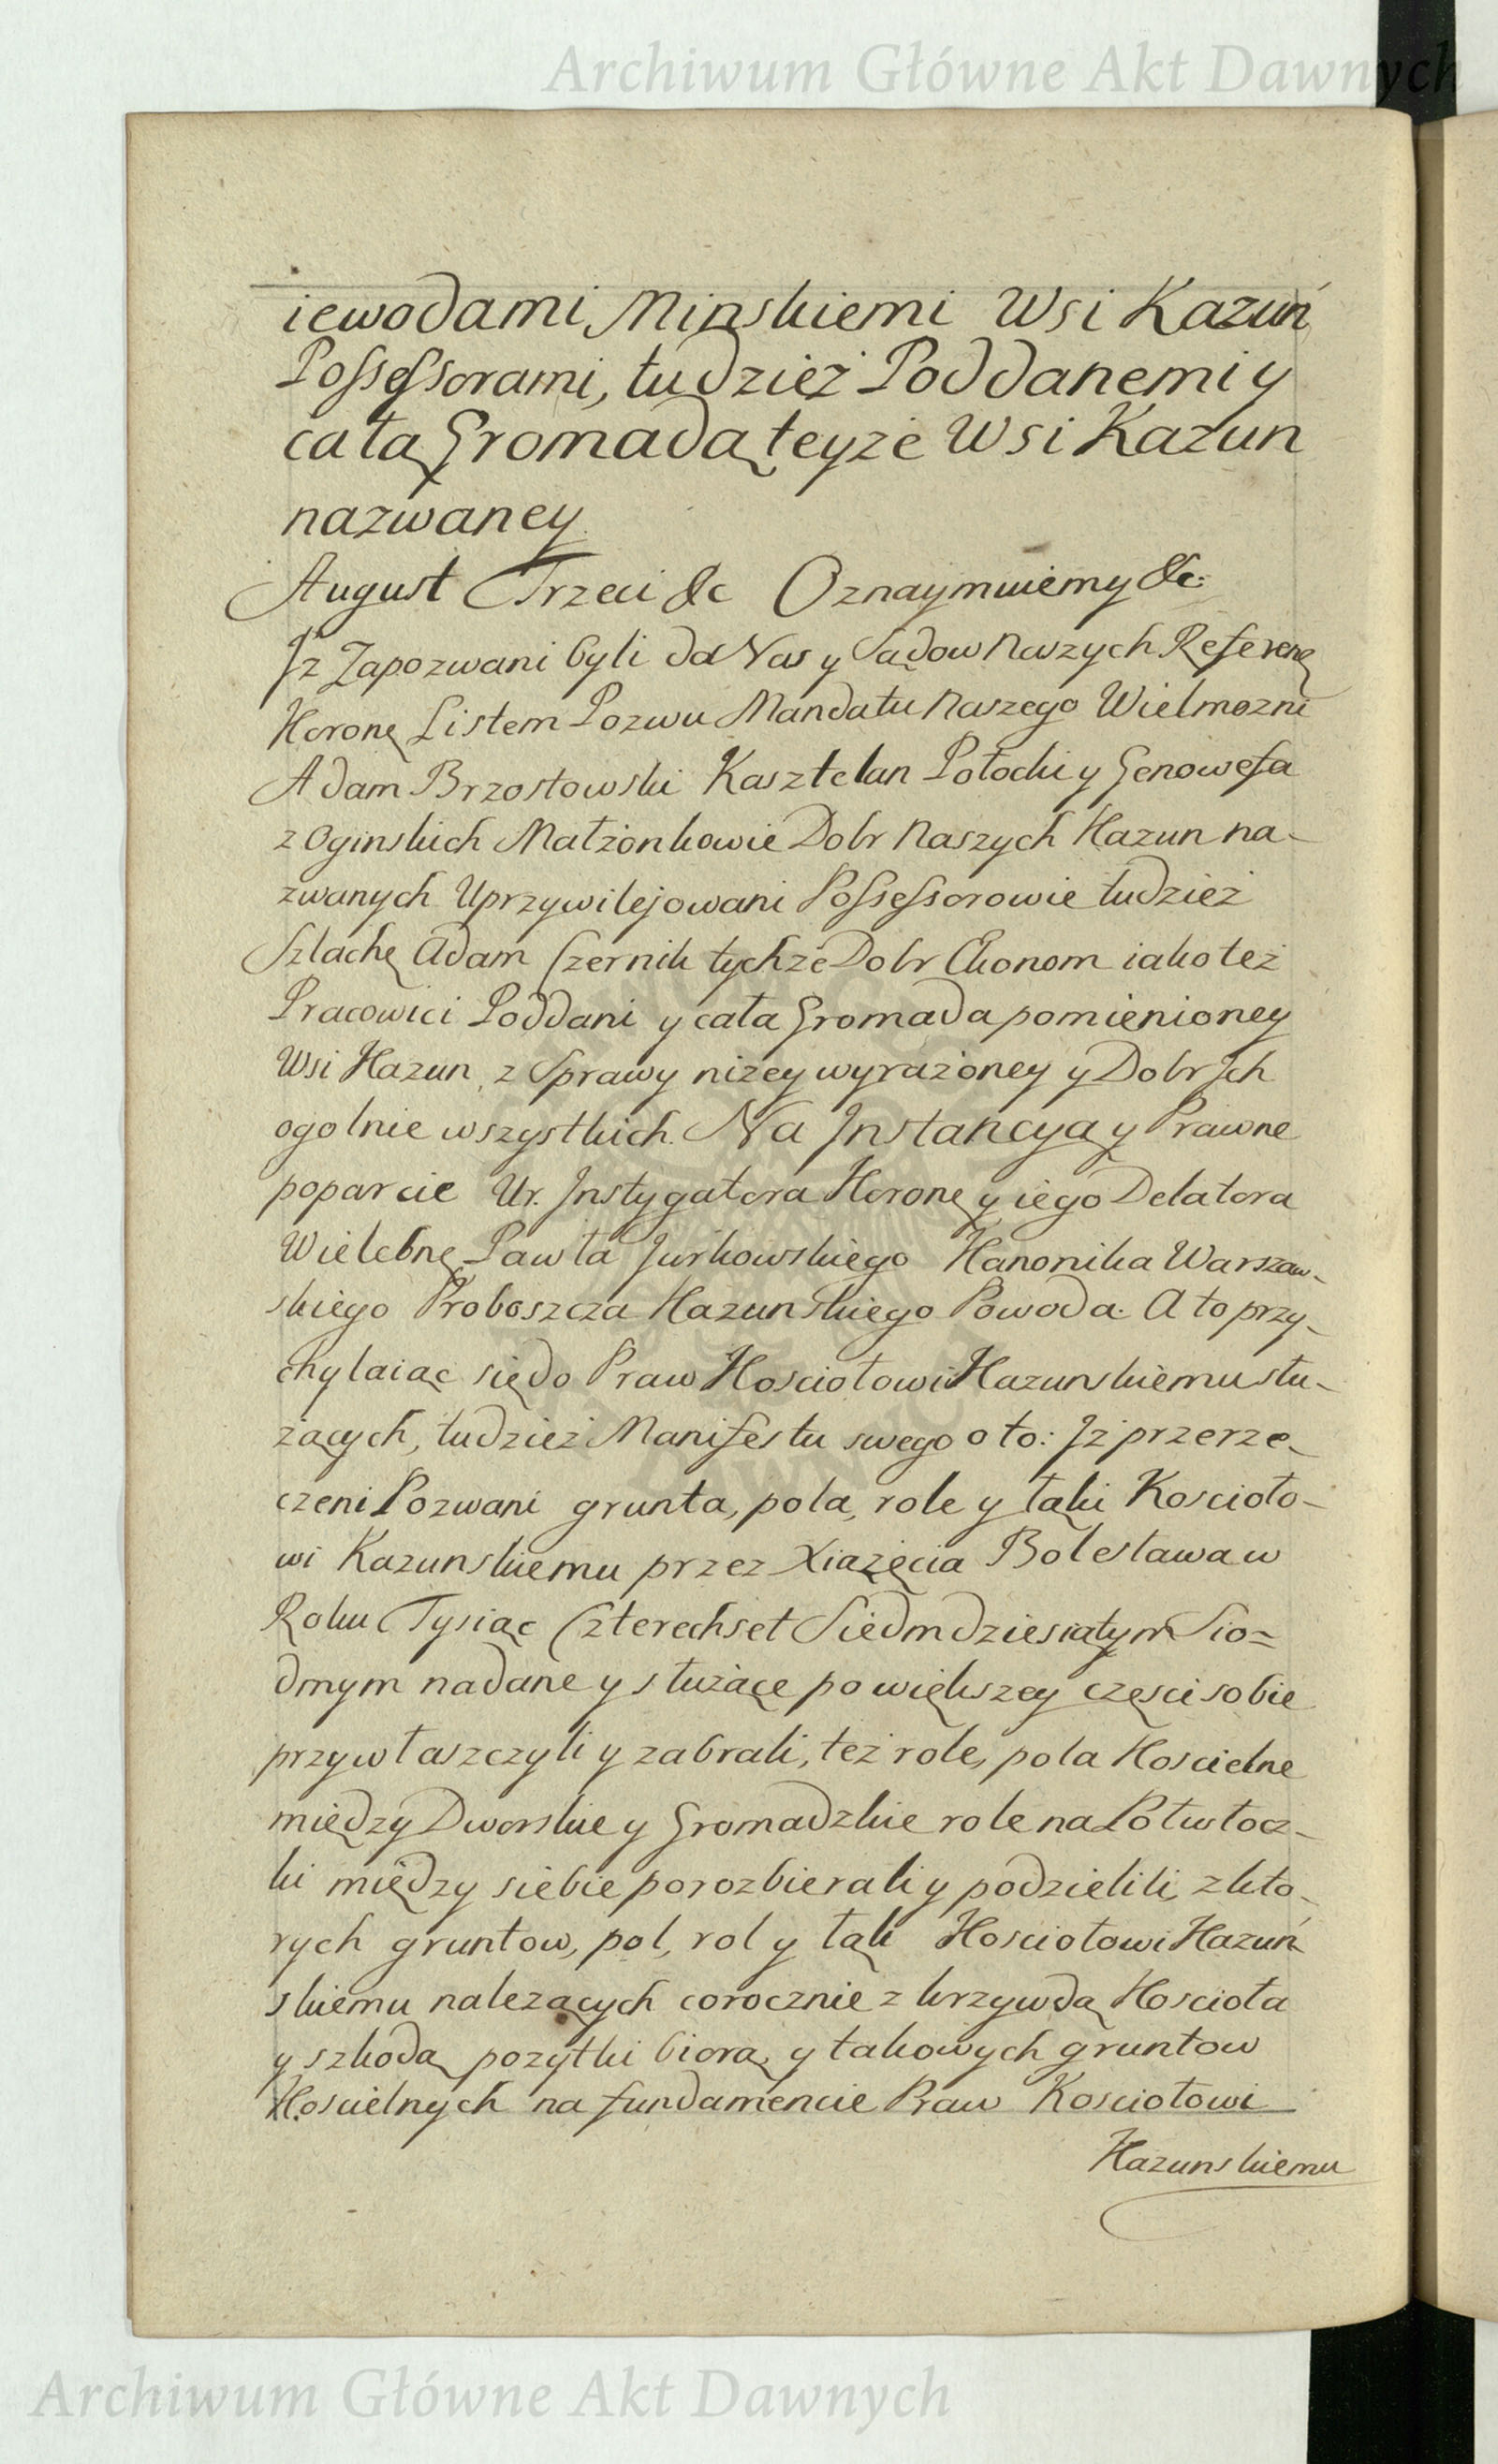 Archiwum Główne Akt Dawnych
iewodami Minskiemi Wsi Kazuń
Possessorami, tudzież Poddanemi y
całą Gromadą teyże Wsi Kazun
nazwaney
August Trzeci &c Oznaymuiemy &c:
Iż Zapozwani byli do Nas y Sądow Naszych Referenę
Koronę Listem Pozwu Mandatu Naszego Wielmozni
Adam Brzostowski Kasztelan Połocki y Genowefa
z Oginskich Małżonkowie Dobr Naszych Kazun na-
zwanych Uprzywilejowani Possessorowie tudzież
Szlachę Adam Czernik tychże Dobr Ekonom iako też
Pracowici Poddani y cała Gromada pomienioney
Wsi Kazun, z Sprawy niżey wyrażoney y Dobr Ich
ogolnie wszystkich. Na Instancyą y Prawne
poparcie Ur. Instygatora Koronę y iego Delatora
Wielebnę Pawła Jurkowskiego Kanonika Warszaw-
skiego Proboszcza Kazunskiego Powoda. A to przy-
chylaiąc się do Praw Kosciołowi Kazunskiemu słu-
żących, tudzież Manifestu swego o to: Iż przerze-
czeni Pozwani grunta, pola, role y łąki Kościoło-
wi Kazunskiemu przez Xiążęcia Bolesława w
Roku Tysiąc Czterechset Siedmdziesiątym Sio=
dmym nadane y służące po większey części sobie
przywłaszczyli y zabrali, też role, pola Koscielne
między Dworskie y Gromadzkie role na Połwłocz-
ki między siebie porozbierali y podzielili, z kto-
rych gruntow, pol, rol y łąk Kosciołowi Kazuń
skiemu nalezących corocznie z krzywdą Kościoła
y szkodą pozytki biorą, y takowych gruntow
Koscielnych na fundamencie Praw Kosciołowi
Kazunskiemu
Archiwum Główne Akt Dawnych